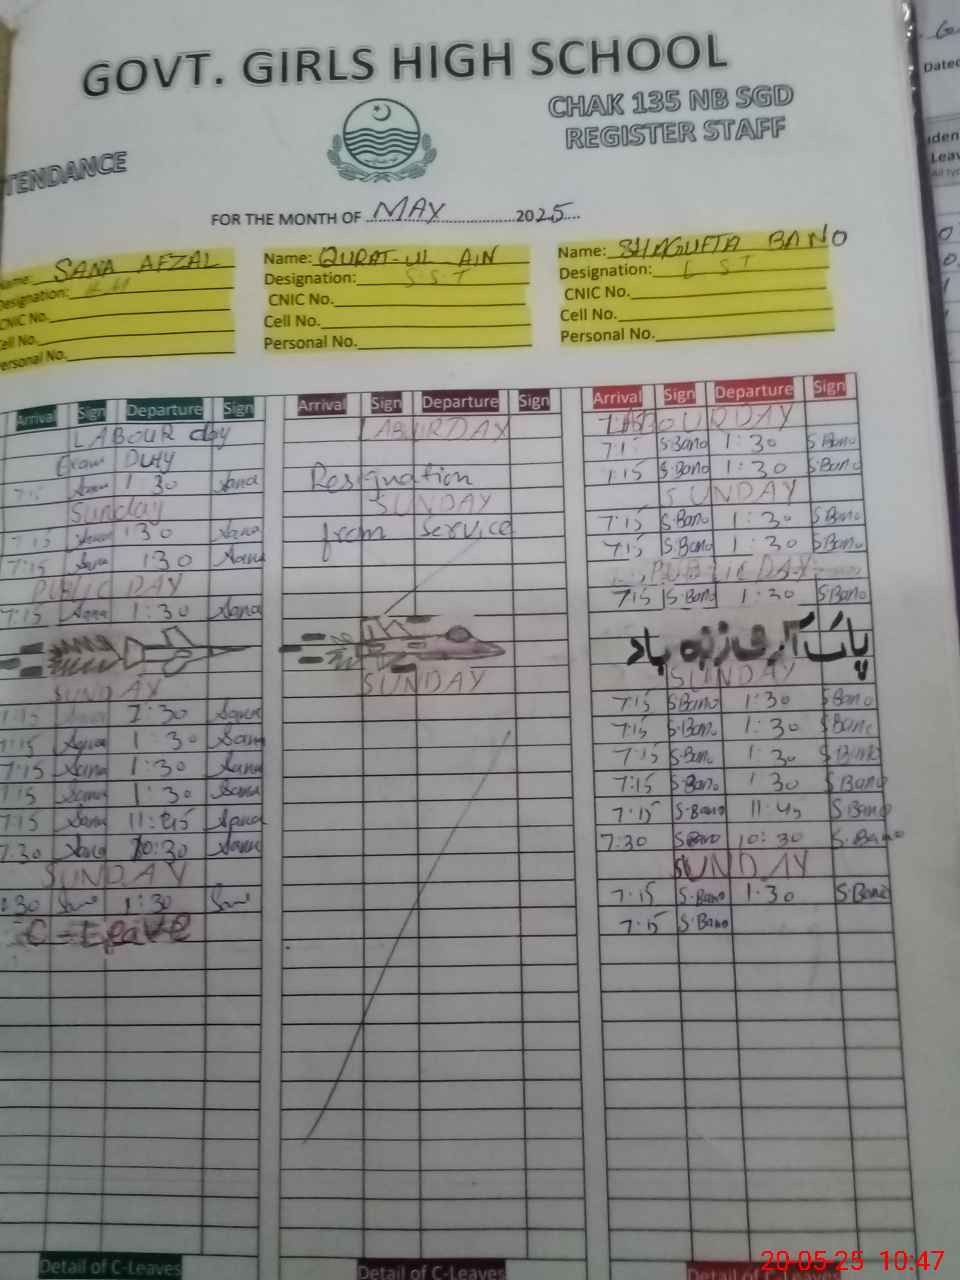 GOVT. GIRLS HIGH SCHOOL
CHAK 135 NB SGD
REGISTER STAFF
TENDANCE
FOR THE MONTH OF MAY 2025
Name: SANA AFZAL
Designation:
CNIC No.
Cell No.
Personal No.
Name: QURAT-UL AIN
Designation: S.S.T
CNIC No.
Cell No.
Personal No.
Name: SHAGUFTA BANO
Designation: EST
CNIC No.
Cell No.
Personal No.
Arrival Sign Departure Sign
LABOUR day
Exam Duty
1:30 Sana
Sunday
7:15 Sana 1:30 Sana
7:15 Sana 1:30 Sana
PUBLIC DAY
7:15 Sana 1:30 Sana
SUNDAY
7:15 Sana
7:15 Sana 1:30 Sana
7:15 Sana 1:30 Sana
7:15 Sana 1:30 Sana
7:15 Sana 11:45 Sana
7:30 Sana 10:30 Sana
SUNDAY
1:30
C-Leave
Arrival Sign Departure Sign
LABOUR DAY
Resignation
SUNDAY
from Service
SUNDAY
Arrival Sign Departure Sign
LABOUR DAY
7:15 S.Bano 1:30 S.Bano
7:15 S.Bano 1:30 S.Bano
SUNDAY
7:15 S.Bano 1:30 S.Bano
7:15 S.Bano 1:30 S.Bano
PUBLIC DAY
7:15 S.Bano 1:30 S.Bano
پاک آرمی زندہ باد
SUNDAY
7:15 S.Bano 1:30 S.Bano
7:15 S.Bano 1:30 S.Bano
7:15 S.Bano 1:30 S.Bano
7:15 S.Bano 1:30 S.Bano
7:15 S.Bano 11:45 S.Bano
7:30 S.Bano 10:30 S.Bano
SUNDAY
7:15 S.Bano 1:30 S.Bano
7:15 S.Bano
Detail of C-Leaves
Detail of C-Leaves
Detail of C-L
Dated
iden
Leav
20-05-25 10:47